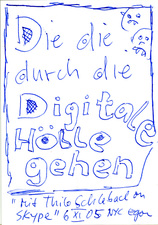 Die die
durch die
Digitale
Hölle
gehen
"Mit Thilo Schlebach on
Skype" 6 XI 05 NYC egon